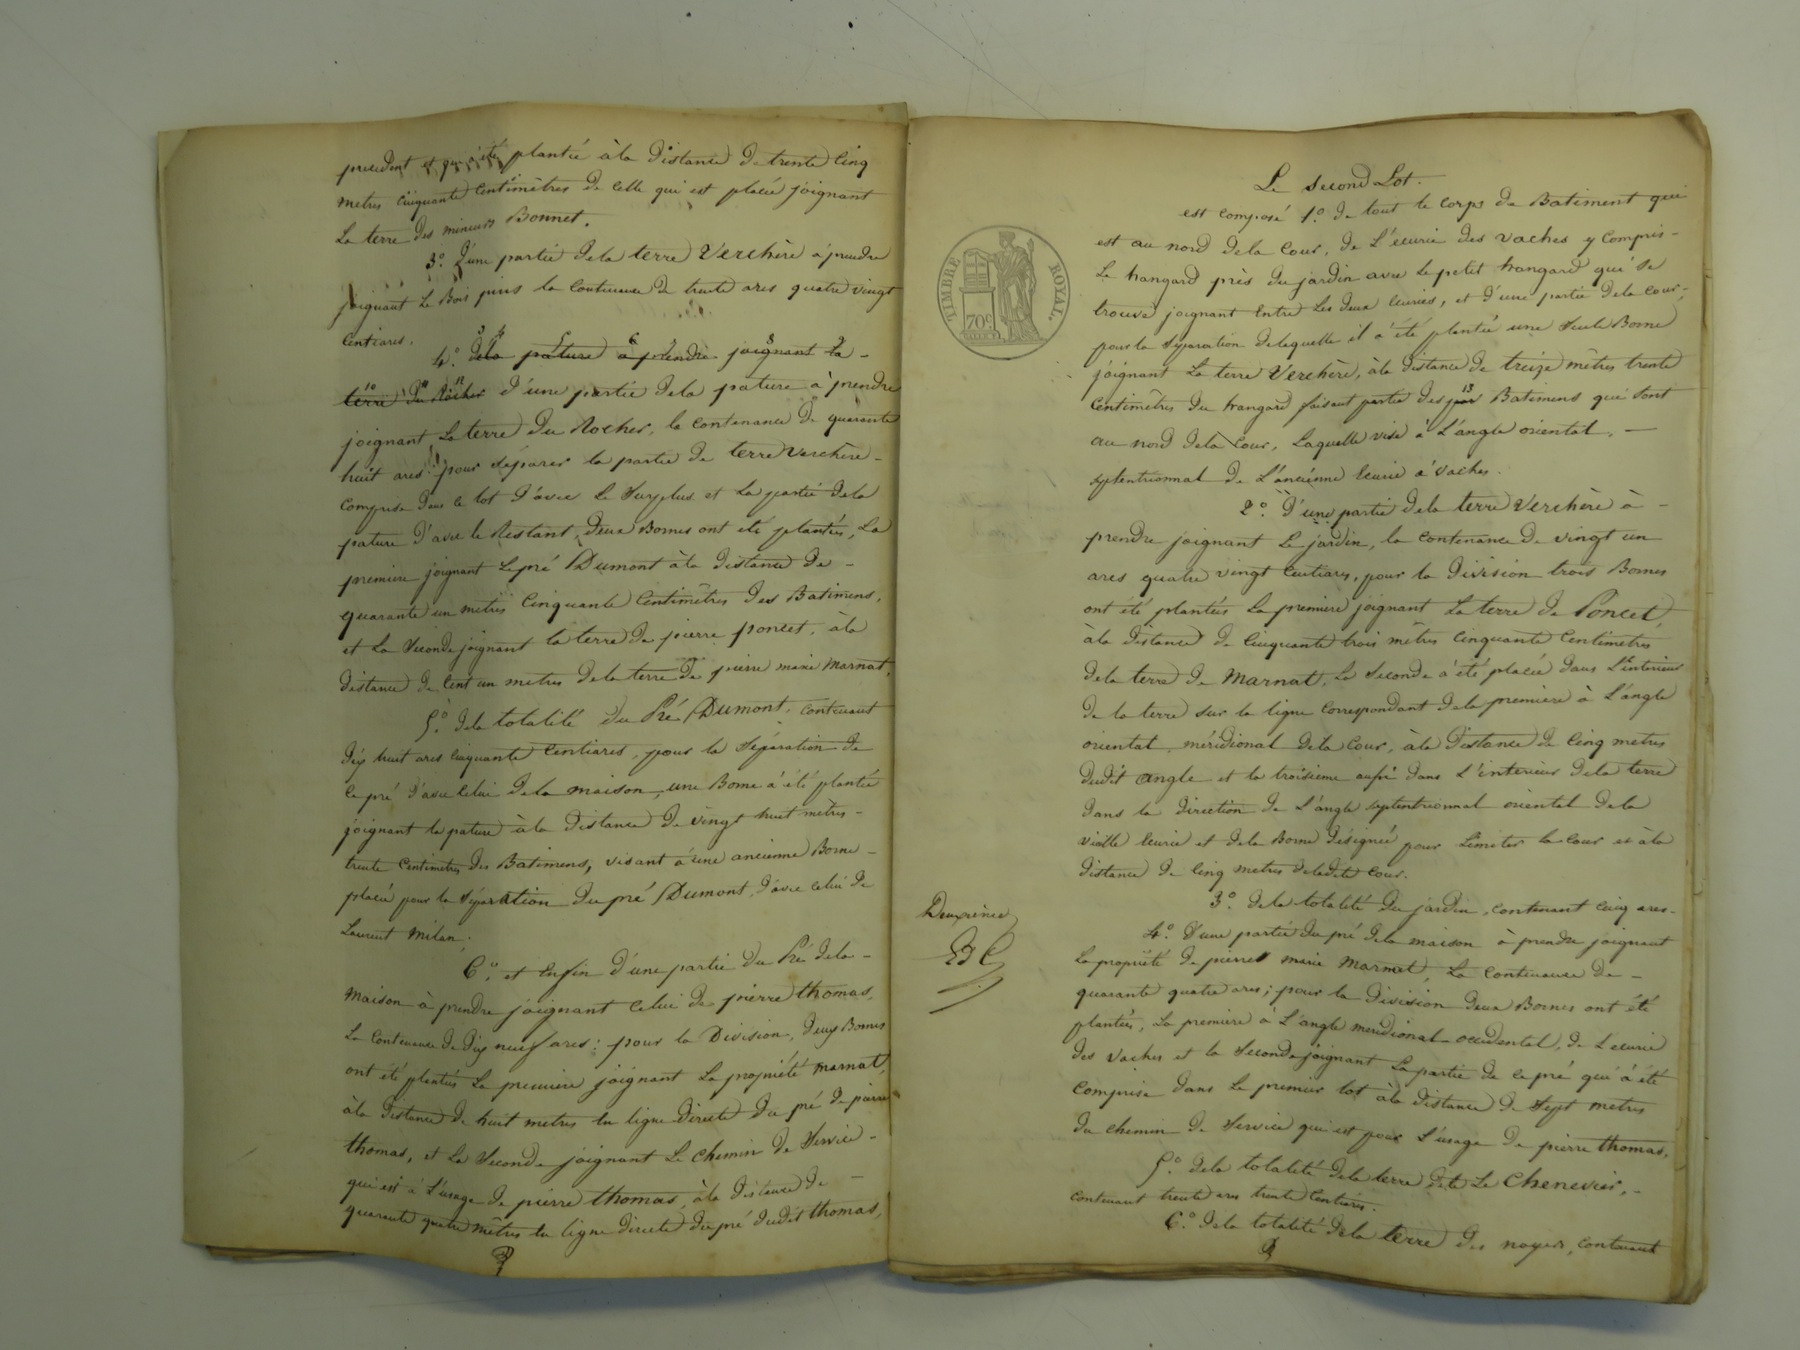 precedent et qui a été plantée à la distance de trente cinq
metres cinquante centimètres de celle qui est placée joignant
La terre des mineurs Bonnet.
3.° D'une partie dela terre Verchère à prendre
joignant Le Bois pour la contenance de trente ares quatre vingt
centiares.
4.° dela pature à prendre joignant La -
terre du Rocher d'une partie dela pature à prendre
joignant La terre du Rocher, la contenance de quarante
huit ares: pour séparer la partie de terre Verchère -
comprise dans le lot d'avec le surplus et La partie dela
pature d'avec le Restant, deux Bornes ont été plantées, La
premiere joignant Le pré Dumont à la distance de -
quarante un metres cinquante centimètres des Batimens,
et La seconde joignant la terre de pierre poncet, à la
distance de cent un metres dela terre de pierre marie Marnat,
5.° dela totalité du Pré Dumont, contenant
dix huit ares cinquante centiares, pour la séparation de
ce pré d'avec celui dela maison, une Borne a été plantée
joignant la pature à la distance de vingt huit metres -
trente centimetres des Batimens, visant à une ancienne Borne -
placée pour la séparation du pré Dumont, d'avec celui de
Laurent Milan;
6.° et enfin d'une partie du Pré dela -
maison à prendre joignant celui de pierre thomas,
La contenance de dix neuf ares: pour la Division, deux Bornes
ont été plantées La premiere joignant La propriété marnat,
à la distance de huit metres en ligne directe du pré de pierre
thomas, et La seconde joignant Le chemin de service -
qui est à l'usage de pierre thomas, à la distance de -
quarante quatre mètres en ligne directe du pré dudit thomas,
Le second Lot.
est composé 1.° de tout le corps de Batiment qui
est au nord dela cour, de L'écurie des vaches y compris -
Le hangard près du jardin avec Le petit hangard qui se
trouve joignant entre Les deux écuries, et d'une partie dela cour,
pour la séparation delaquelle il a été plantée une seule Borne
joignant La terre Verchère, à la distance de treize mètres trente
centimètres du hangard faisant partie des Batimens qui sont
au nord dela Cour, Laquelle vise à L'angle oriental, -
septentrionnal de L'ancienne écurie à vaches.
2.° D'une partie dela terre Verchère à -
prendre joignant Le jardin, la contenance de vingt un
ares quatre vingt centiares, pour la division trois Bornes
ont été plantées La premiere joignant La terre de Poncet,
à la distance de cinquante trois mètres cinquante centimetres
dela terre de Marnat, La seconde a été placée dans L'interieur
de la terre sur la ligne correspondant dela premiere à L'angle
oriental, méridional dela Cour, à la distance de cinq metres
dudit angle et la troisieme aussi dans L'interieur dela terre
dans la direction de L'angle septentrionnal oriental dela
vieille écurie et dela Borne désignée pour limiter la cour et à la
distance de cinq metres deladite cour.
3.° dela totalité du jardin, contenant cinq ares -
4.° D'une partie du pré dela maison à prendre joignant
La propriété de pierre marie Marnat, La contenance de -
quarante quatre ares; pour la division deux Bornes ont été
plantées, La premiere à L'angle meridional occidental, de L'ecurie
des vaches et la seconde joignant La partie de ce pré qui a été
comprise dans Le premier lot à la distance de sept metres
du chemin de service qui est pour L'usage de pierre thomas,
5.° dela totalité dela terre dite Le Chenevier, -
contenant trente ares trente centiares.
6.° dela totalité dela terre des noyers, contenant
TIMBRE ROYAL.
70c.
Deuxième